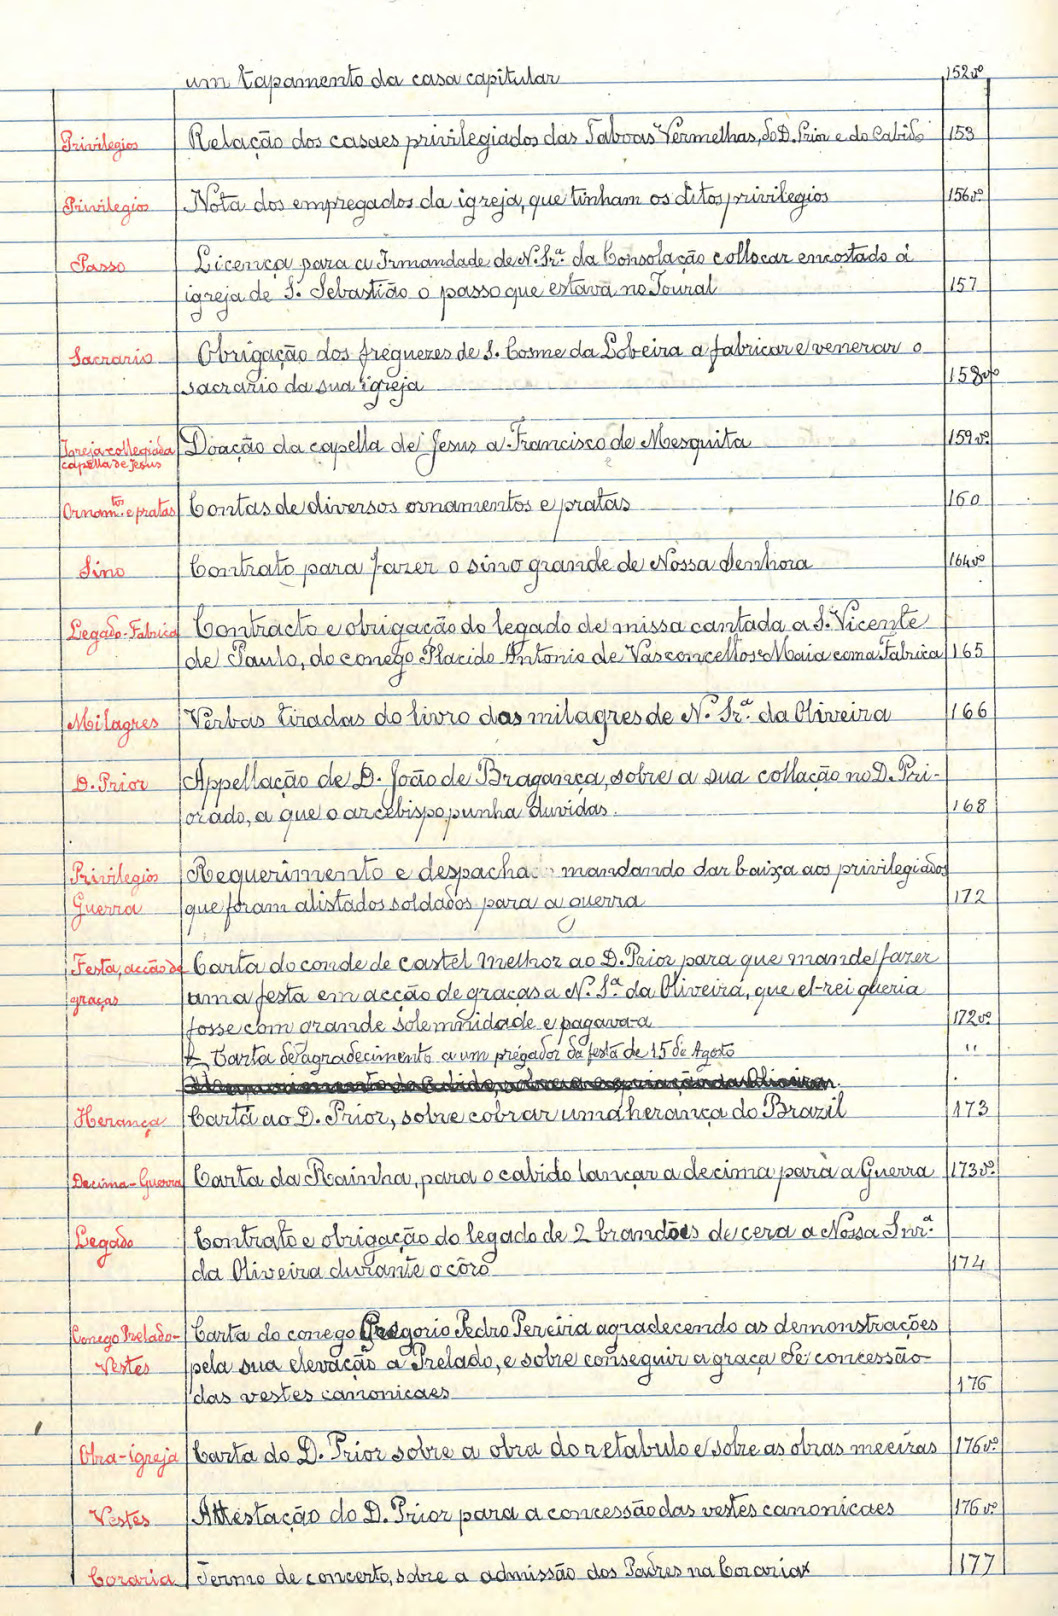 um tapamento da casa capitular 152vº
Privilegios Relação dos casaes privilegiados das Taboas Vermelhas, do D. Prior e do Cabido 153
Privilegios Nota dos empregados da igreja, que tinham os ditos privilegios 156vº
Passo Licença para a Irmandade de N. Srª. da Consolação collocar encostado á
igreja de S. Sebastião o passo que estava no Toural 157
Sacrario Obrigação dos freguezes de S. Cosme da Lobeira a fabricar e venerar o
sacrario da sua igreja 158vº
Igreja collegiada Doação da capella de Jesus a Francisco de Mesquita 159vº
capella de Jesus
Ornamtos e pratas Contas de diversos ornamentos e pratas 160
Sino Contrato para fazer o sino grande de Nossa Senhora 164vº
Legado-Fabrica Contracto e obrigação do legado de missa cantada a S. Vicente
de Paulo, do conego Placido Antonio de Vasconcellos Maia com a Fabrica 165
Milagres Verbas tiradas do livro dos milagres de N. Srª. da Oliveira 166
D. Prior Appellação de D. João de Bragança, sobre a sua collação no D. Pri-
orado, a que o arcebispo punha duvidas. 168
Privilegios Requerimento e despacho mandando dar baixa aos privilegiados
Guerra que foram alistados soldados para a guerra 172
Festa, acção de Carta do conde de Castel Melhor ao D. Prior para que mande fazer
graças uma festa em acção de graças a N. Sª. da Oliveira, que el-rei queria
fosse com grande solemnidade e pagava-a 172vº
Carta de agradecimento a um prégador da festa de 15 de Agosto "
Herança Carta ao D. Prior, sobre cobrar uma herança do Brazil 173
Decima-Guerra Carta da Rainha, para o cabido lançar a decima para a Guerra 173vº
Legado Contrato e obrigação do legado de 2 brandões de cera a Nossa Snrª.
da Oliveira durante o côro 174
Conego Prelado- Carta do conego Gregorio Pedro Pereira agradecendo as demonstrações
Vestes pela sua elevação a Prelado, e sobre conseguir a graça de concessão
das vestes canonicaes 176
Obra-igreja Carta do D. Prior sobre a obra do retabulo e sobre as obras meeiras 176vº
Vestes Attestação do D. Prior para a concessão das vestes canonicaes 176vº
Coraria Termo de concerto, sobre a admissão dos Padres na Coraria 177